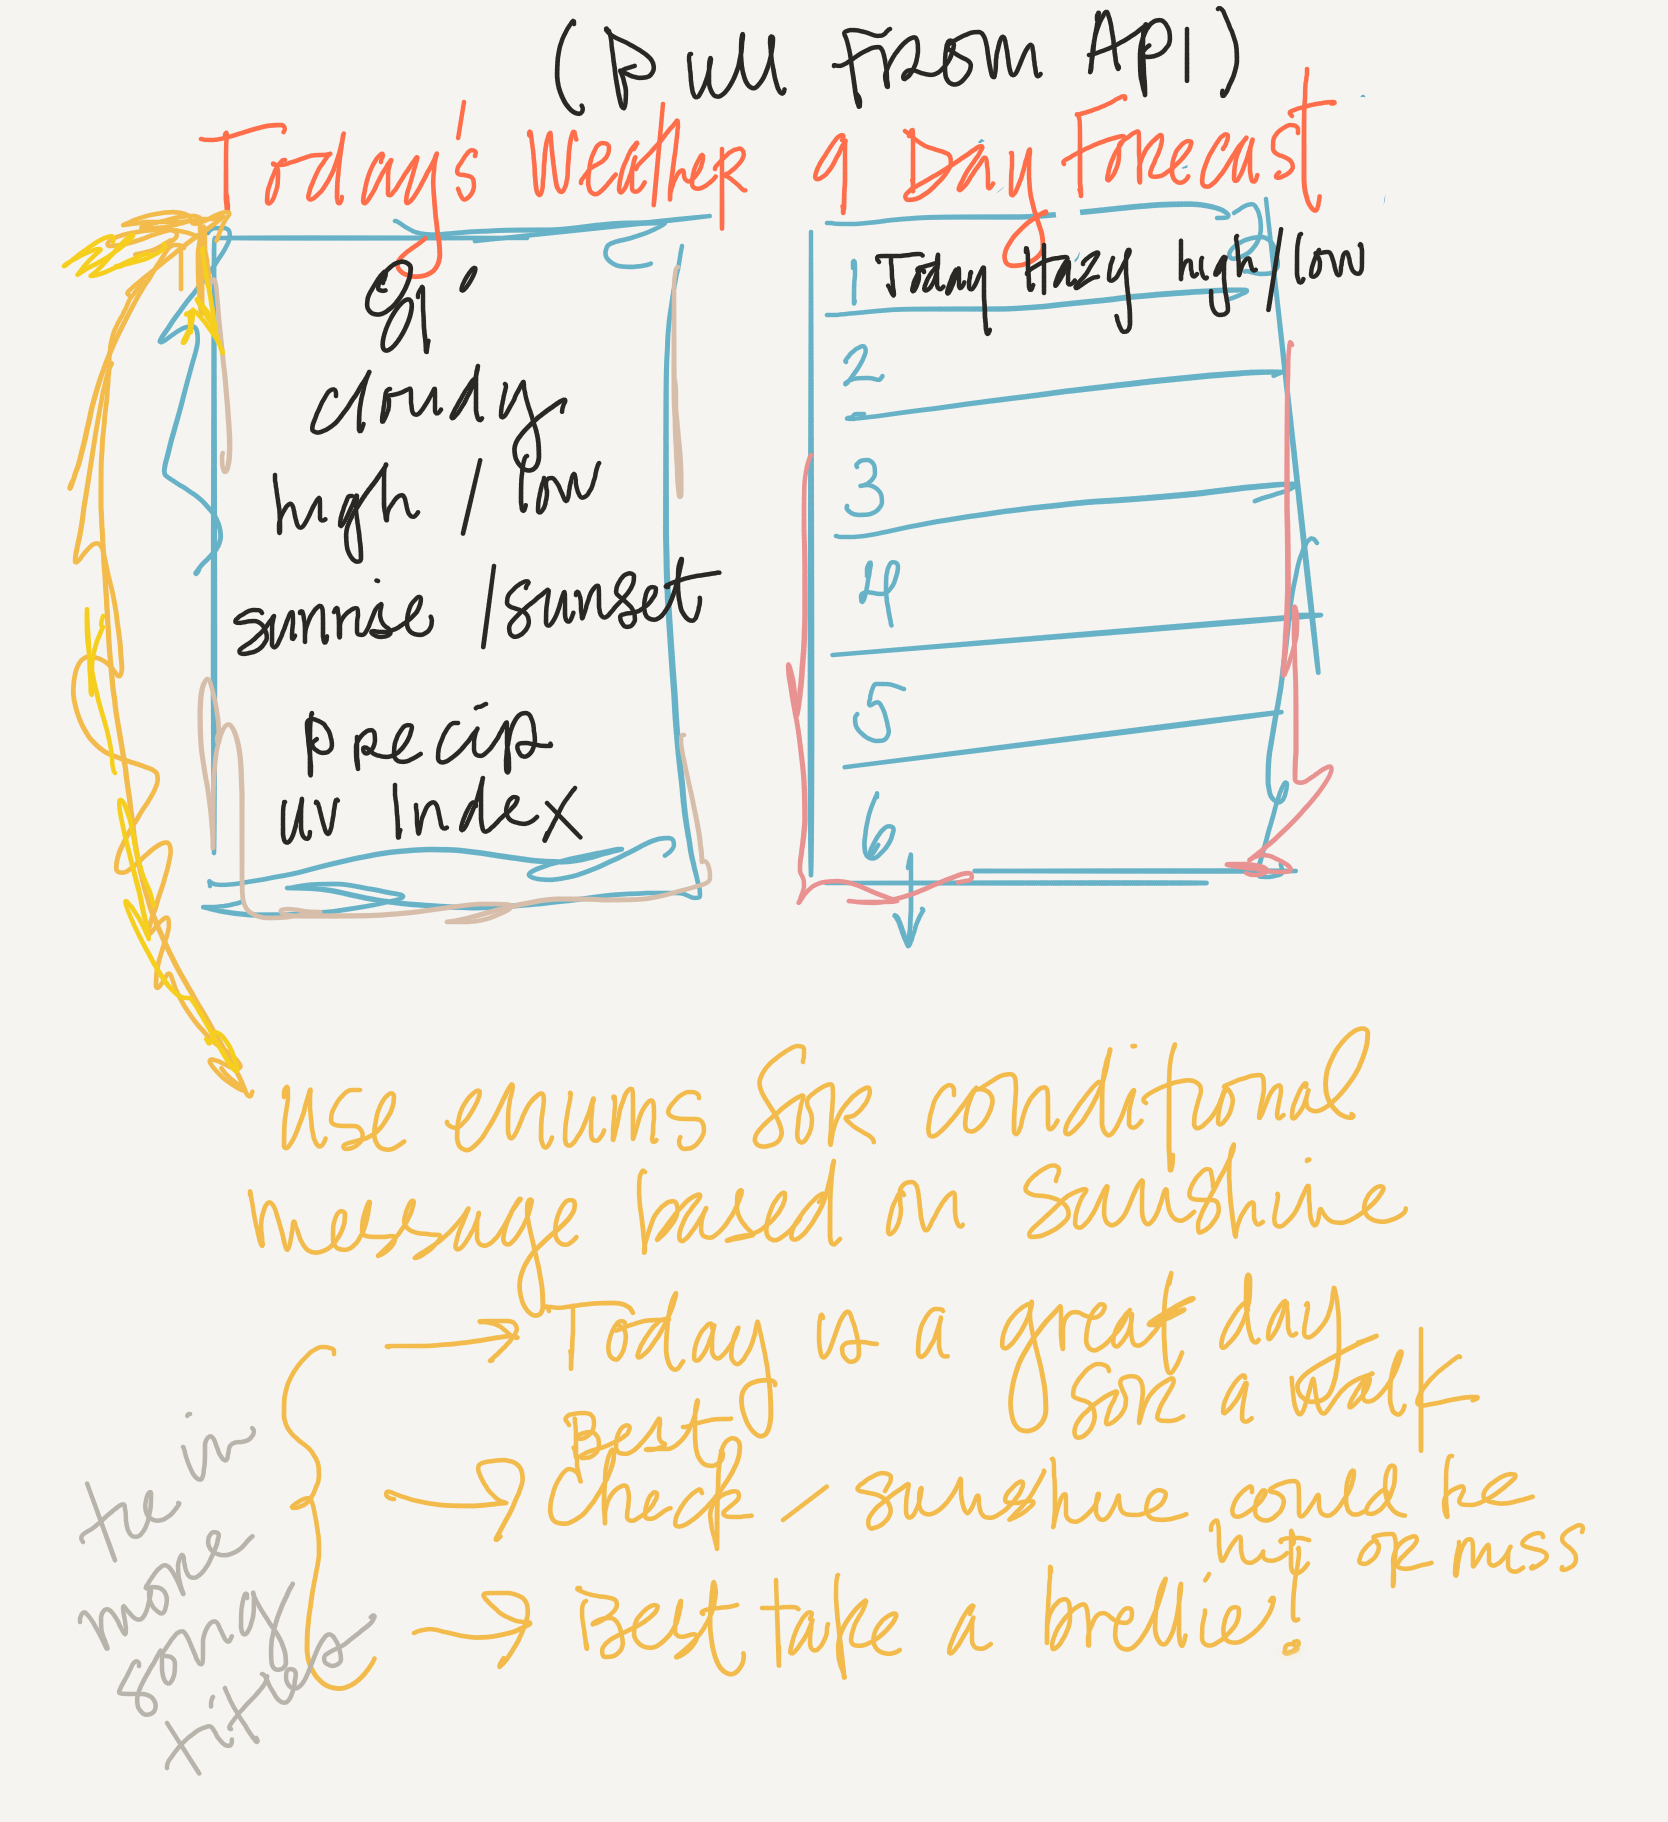 (Pull From API)
Today's Weather
91°
cloudy
high / low
sunrise / sunset
precip
uv Index
9 Day Forecast
1 Today Hazy high/low
2
3
4
5
6
use enums for conditional
message based on sunshine
→ Today is a great day
for a walk
→ Best Check - sunshine could be
hit or miss
→ Best take a brellie!
tie in
more
song
titles